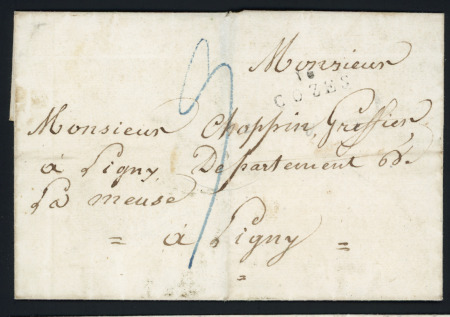 Monsieur
16
COZES
Monsieur Chappin Greffier
à Ligny Departement de
La meuse
= à Ligny =
=